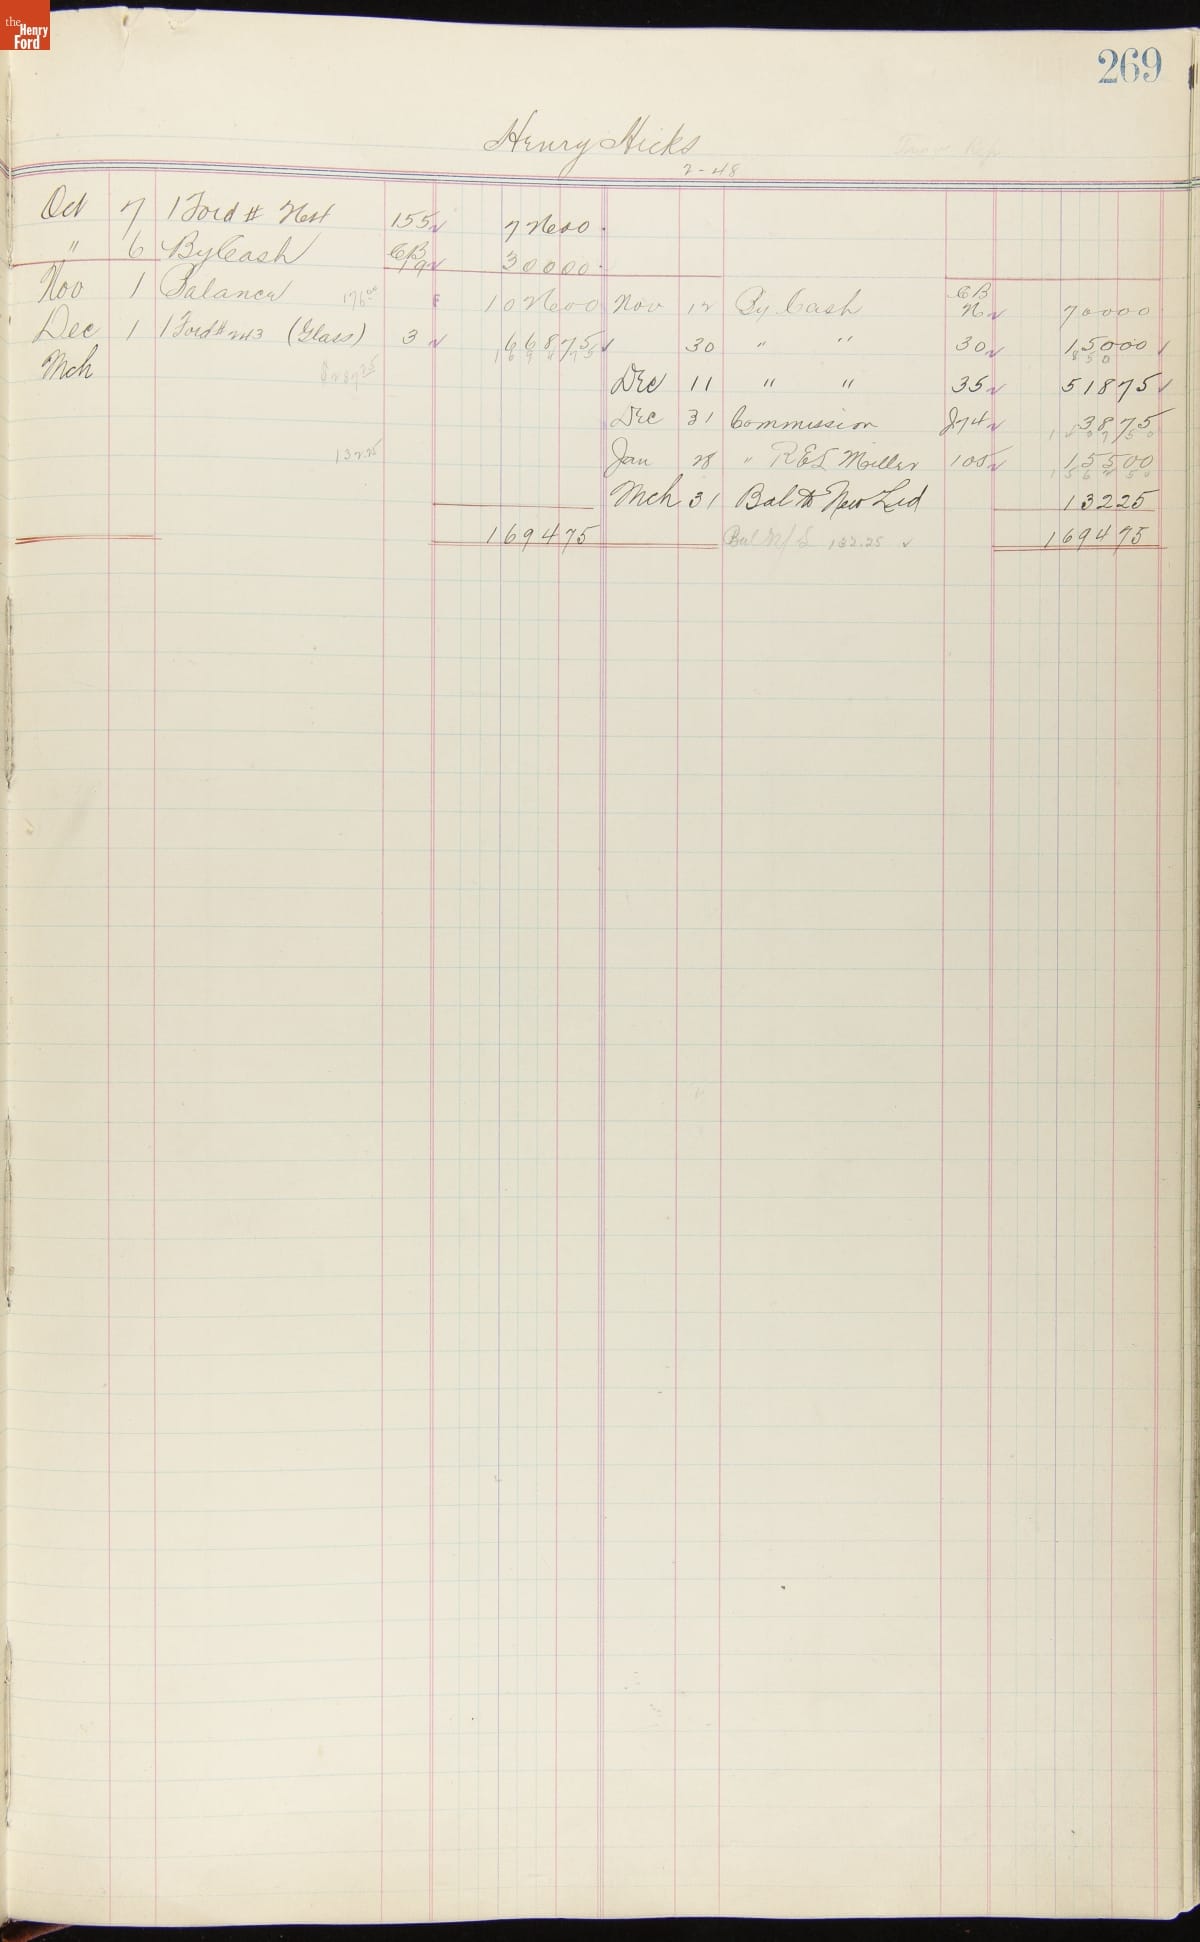 the Henry Ford
269
Henry Hicks
2-48
Oct 7 1 Ford # 155 72600
" 6 By Cash CB 19 30000
Nov 1 Balance 176.00 102600 Nov 12 By Cash CB 70000
Dec 1 1 Ford # 243 (Glass) 3 66875 30 " " 30 15000
169475 850
Mch Dec 11 " " 35 51875
Dec 31 Commission J74 3875
140750
132.25 Jan 28 " R E S Miller 105 15500
156250
Mch 31 Bal to New Led 13225
169475 Bal N/L 132.25 169475